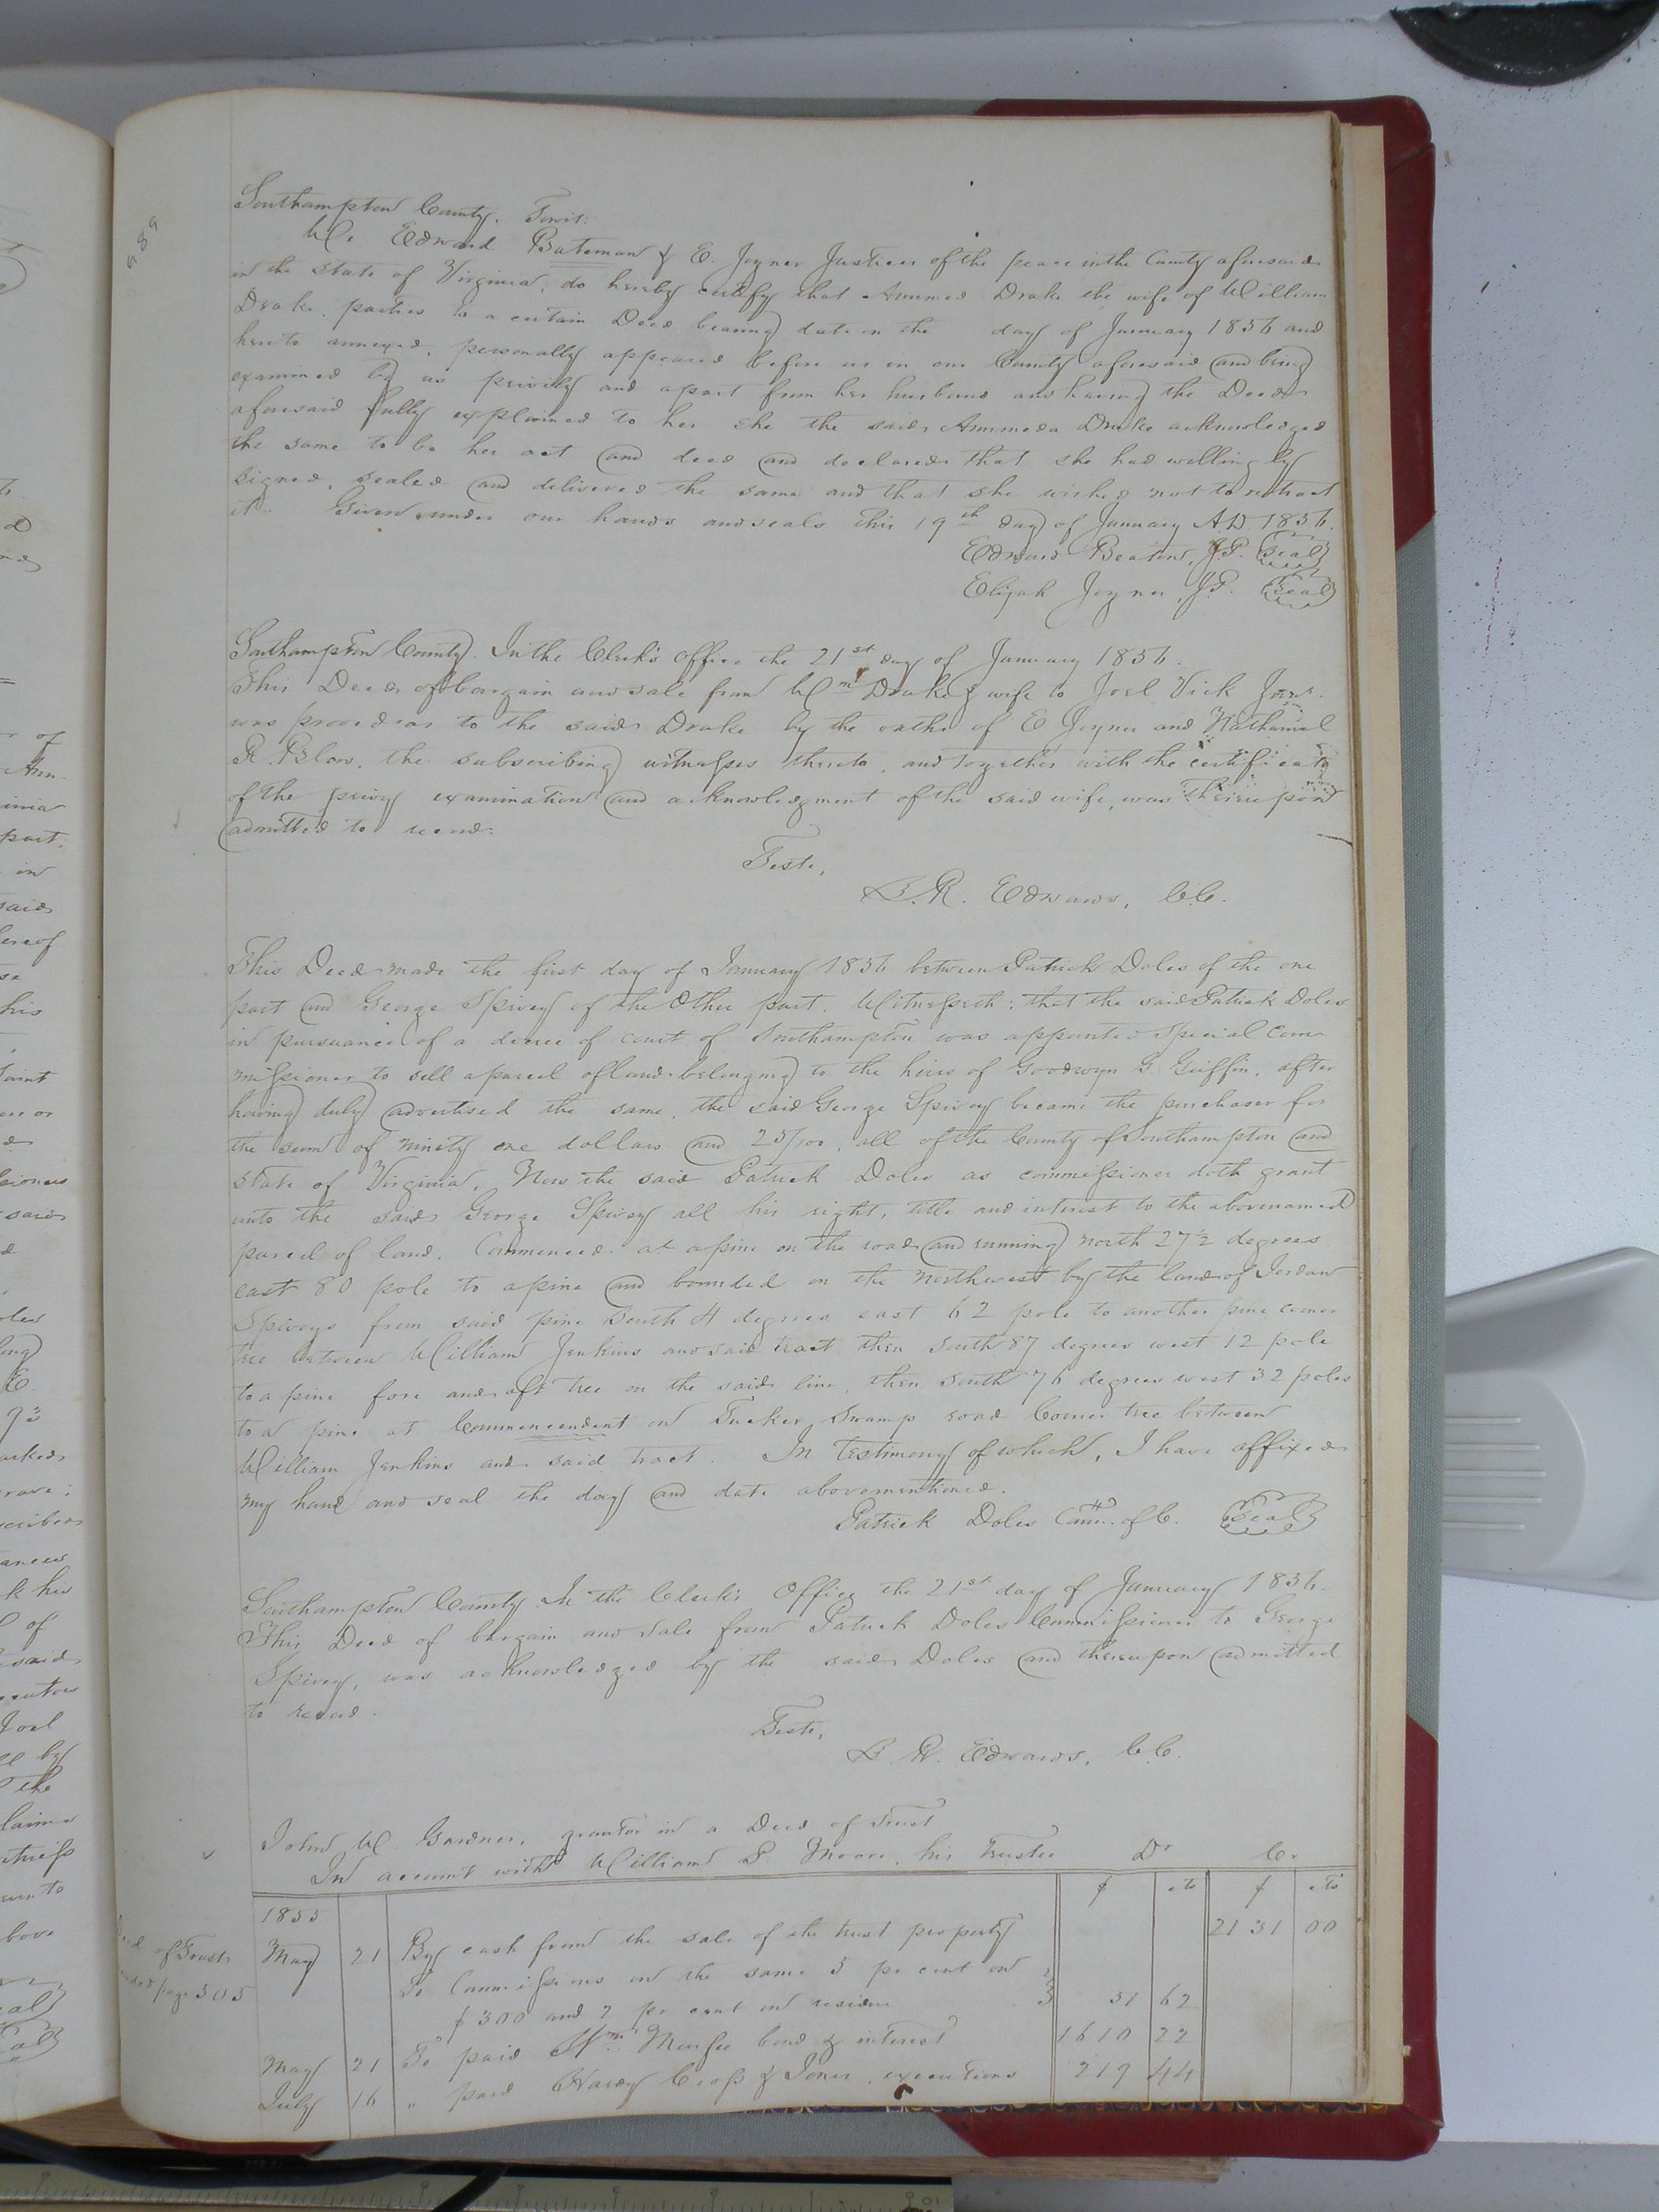 589
Southampton County. Towit:
We Edward Bateman & E. Joyner Justices of the peace in the County aforesaid
in the State of Virginia, do hereby certify that Ammed Drake the wife of William
Drake, parties to a certain Deed bearing date in the day of January 1856 and
hereto annexed, personally appeared before us in our County aforesaid and being
examined by us privily and apart from her husband and having the Deed
aforesaid fully explained to her she the said Ammeda Drake acknowledged
the same to be her act and deed and declared that she had willingly
signed, sealed and delivered the same and that she wished not to retract
it. Given under our hands and seals this 19th day of January AD. 1856.
Edward Beaton, J.P. Seal
Elijah Joyner, J.P. Seal
Southampton County. In the Clerk's Office the 21st day of January 1856.
This Deed of bargain and sale from Wm Drake & wife to Joel Vick
was proved as to the said Drake by the oaths of E Joyner and Nathaniel
R. Blow, the subscribing witnesses thereto, and together with the certificate
of the privy examination and acknowledgment of the said wife, was thereupon
admitted to record.
Teste,
L. R. Edwards, C.C.
This Deed made the first day of January 1856 between Patrick Doles of the one
part and George Spivey of the Other part. Witnesseth: that the said Patrick Doles
in pursuance of a decree of court of Southampton was appointed Special Com-
missioner to sell a parcel of land belonging to the heirs of Goodwyn G Griffin, after
having duly advertised the same, the said George Spivey became the purchaser for
the sum of ninety one dollars and 25/100, all of the County of Southampton and
state of Virginia. Now the said Patrick Doles as commissioner doth grant
unto the said George Spivey all his right, title and interest to the abovenamed
parcel of land. Commenced at a pine on the road and running north 27½ degrees
east 80 pole to a pine and bounded on the Northwest by the land of Jordan
Spiveys from said pine South 4 degrees east 62 pole to another pine corner
tree between William Jenkins and said tract then South 87 degrees west 12 pole
to a pine fore and aft tree on the said line, then South 76 degrees west 32 poles
to a pine at Commencendent on Tucker Swamp road Corner tree between
William Jenkins and said tract. In testimony of which, I have affixed
my hand and seal the day and date abovementioned.
Patrick Doles Com. of C. Seal
Southampton County In the Clerk's Office the 21st day of January 1856.
This Deed of bargain and Sale from Patrick Doles Commissioner to George
Spivey, was acknowledged by the said Doles and thereupon admitted
to record.
Teste,
L. R. Edwards, C.C.
John W. Gardner, grantor in a Deed of Trust
In account with William P. Moore, his trustee Dr Cr
$ cts $ cts
1855
May 21 By cash from the sale of the trust property 2131 00
To Commissions on the same 5 per cent on
$300 and 2 per cent on residue 51 62
May 21 To paid Wm Murfee bond & interest 1610 22
July 16 " paid Harvey Cross & Jones, executions 219 44
of Trust
page 505